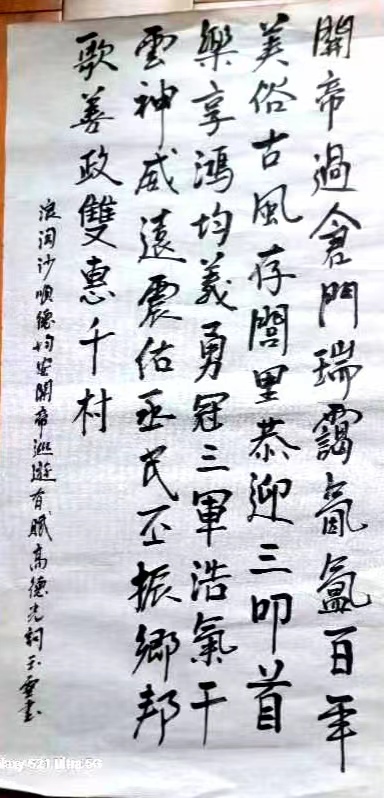 關帝過倉門瑞靄氤氳百年
美俗古風存閭里恭迎三叩首
樂享鴻均義勇冠三軍浩氣干
雲神威遠震佑丞民丕振鄉邦
歌善政雙惠千村
浪淘沙順德均安關帝巡遊有賦高德光詞玉書
laxy S21 Ultra 5G